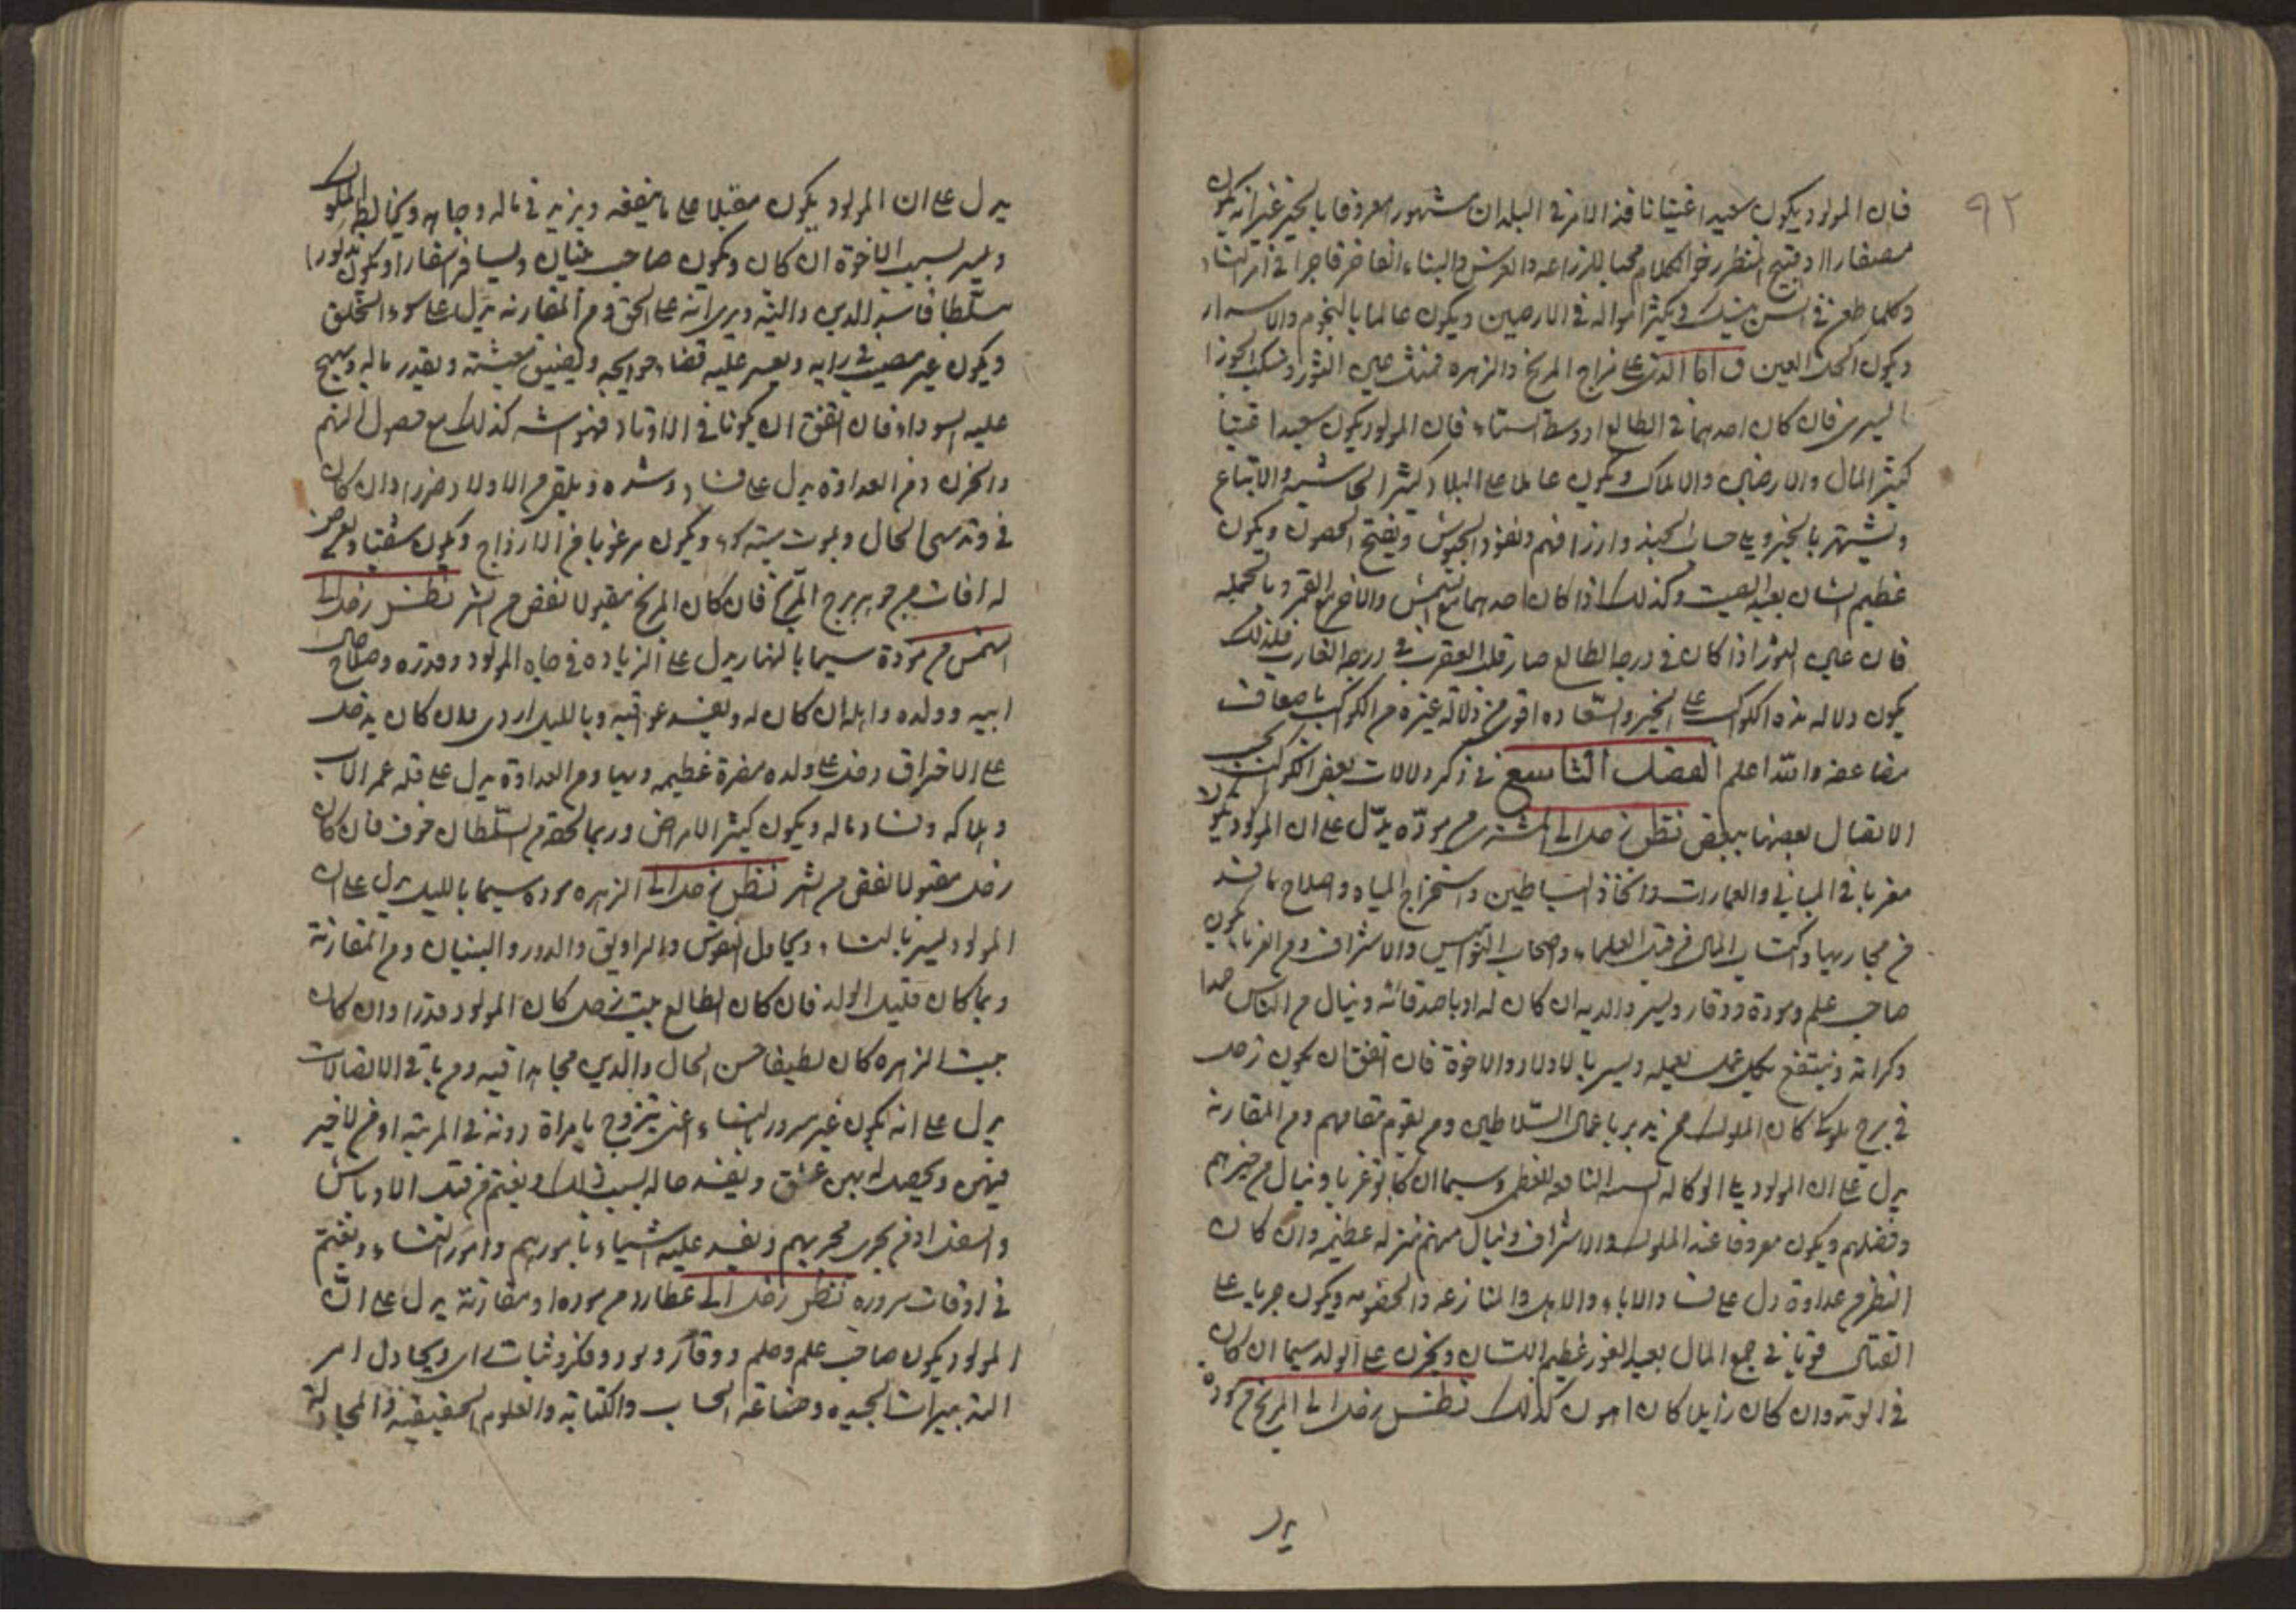 ٩٢
فان المولود يكون سعيدا غنيا نافذ الامر في البلدان مشهورا معروفا بالخير غير انه يكون
قبيح المنظر رخو الكلام محبا للزراعه والغرس والبناء فاجرا في امر النساء
وكلما طعن في السن ويكثر امواله في الارضين ويكون عالما بالنجوم والاسرار
ويكون العين واما الذي على مزاج المريخ والزهره فمثل عين الثور ومنكب الجوزا
اليسرى فان كان احدهما في الطالع او وسط السماء فان المولود يكون سعيدا غنيا
كثير المال والارضين والاملاك ويكون عاملا على البلاد كثير الحاشيه والاتباع
ويشتهر بالخير ويلي حساب الجند وارزاقهم ويقود الجيوش ويفتح الحصون ويكون
عظيم الشان بعيد الصيت وكذلك اذا كان احدهما مع الشمس والاخر مع القمر وبالجمله
فان عين الثور اذا كان في درجه الطالع صار قلب العقرب في درجه الغارب فلذلك
يكون دلاله هذه الكواكب على الخير والسعاده اقوى من دلالة غيره من الكواكب باضعاف
مضاعفه والله اعلم الفصل التاسع في ذكر دلالات بعض الكواكب بحسب
الاتصال بعضها ببعض نظر زحل الى المشتري من مودّه يدّل على ان المولود يكون
في المباني والعمارات واتخاذ البساطين واستخراج المياه واصلاح ما فسد
من مجاريها واكتساب المال من قبل العلماء واصحاب النواميس والاشراف يكون
صاحب علم ومودة ووقار ويسر والديه ان كان له او باصدقائه وينال من الناس حمدا
وكرامة وينتفع بكل عمل يعمله ويسر بالاولاد والاخوة فان اتفق ان يكون زحل
في برج ملوكي كان المولود ممن يدبر باعمال السلاطين ومن يقوم مقامهم ومن المقارنه
يدل على ان المولود يلي الوكاله للعظماء وسيما ان كانوا غربا وينال من خيرهم
وفضلهم ويكون معروفا عند الملوك والاشراف وينال منهم منزله عظيمه وان كان
النظر من عداوة دل على فساد الاباء والاهل والمنازعه والخصومه ويكون جريا على
القتال قويا في جمع المال بعيد الغور عظيم اللسان ويحزن على الولد سيما ان كان
في الوتد وان كان زايلا كان اهون كذلك نظر زحل الى المريخ من مودة
يدل
يدل على ان المولود يكون مقبلا على ما ينفعه ويزيد في ماله وجاهه ويخالط الملوك
ويسر بسبب الاخوة ان كان ويكون صاحب بنيان ويسافر اسفارا ويكون
فاسد الدين والنية ويرى انه على الحق ومن المقارنه يدل على سوء الخلق
ويكون غير مصيب في رايه ويعسر عليه قضاء حوايجه ويضيق معيشته ويقدر ماله ويهيج
عليه السوداء فان اتفق ان يكونا في الاوتاد فهو اشد كذلك مع حصول الهم
والحزن ومن العداوة يدل على فساد وشده ويلقى من الاولاد ضررا وان كان
في وتد سيئ الحال ويموت ميته سوء ويكون مرغوبا من الازواج ويكون شقيا ويعرض
له افات من جوهر برج المريخ فان كان المريخ مقبولا نقص من الشر نظر زحل الى
الشمس من مودة سيما بالنهار يدل على الزياده في جاه المولود وقدره وصلاح حال
ابيه وولده واهله ان كان له ويفسد عواقبه وبالليل اردى وان كان يدخل
على الاحتراق دخل على ولده مضرة عظيمه ومن العداوة يدل على قله عمر الاب
وهلاكه وفساد ماله ويكون كثير الامراض وربما لحقه من السلطان خوف فان كان
زحل مقبولا نقص من الشر نظر زحل الى الزهره موده سيما بالليل يدل على ان
المولود يسر بالنساء ويحاول النقوش والزاويق والدور والبنيان ومن المقارنة
ربما كان قليل الولد فان كان الطالع بيت زحل كان المولود قذرا وان كان
بيت الزهره كان لطيفا حسن الحال والذي ومن باقي الاتصالات
يدل على انه يكون غير مسرور بالنساء اعني يتزوج بامراة دونه في المرتبه او من لا خير
فيهن ويحصل له بهن عشق ويفسد حاله بسبب ذلك ويغتم من قبل الاوباش
والسفل او من يجري مجريهم ويفسد عليه اشياء بامورهم وامور النساء ويغتم
في اوقات سروره نظر زحل الى عطارد من موده او مقارنة يدل على انّ
المولود يكون صاحب علم وحلم ووقار وفكر وثبات راي ويحاول امر
التدبيرات الجيده وصناعة الحساب والكتابة والعلوم الحقيقيه والمجادلة